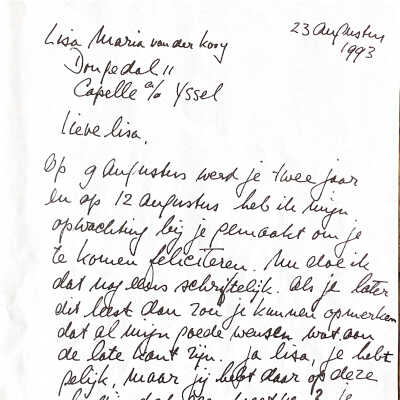 23 Augustus
1993
Lisa Maria van der Kooy
Dongedal 11
Capelle a/o Yssel
Lieve Lisa,
Op 9 Augustus werd je twee jaar
en op 12 augustus heb ik mijn
opwachting bij je gemaakt om je
te komen feliciteren. Nu doe ik
dat nog eens schriftelijk. Als je later
dit leest dan zou je kunnen opmerken
dat al mijn goede wensen wat aan
de late kant zijn. Ja Lisa, je hebt
gelijk, maar jij hebt daar op deze